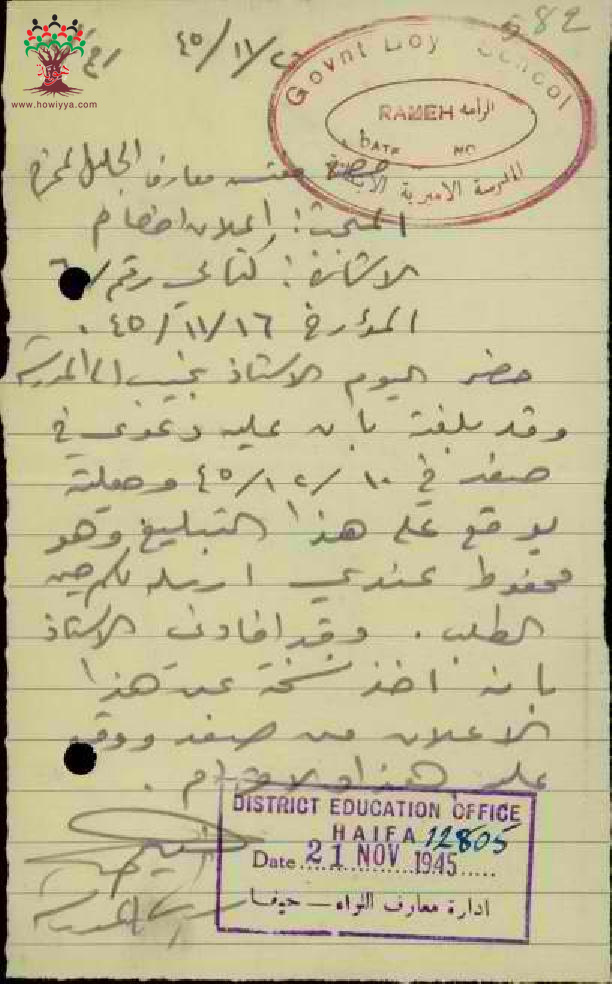 82
www.howiyya.com
Govnt Boy School
RAMEH الرامه
DATE NO
المدرسة الاميرية
٤٥/١١/٢٠
حضرة مفتش معارف الجليل المحترم
المبحث: اعلان احضام
الاشارة: كتابي رقم
المؤرخ ٤٥/١١/١٦.
حضر اليوم الاستاذ نجيب الى المدرسة
وقد بلغته بان عليه دعوى في
صفد في ٤٥/١٢/١٠ وجعلته
يوقع على هذا التبليغ وهو
محفوظ عندي ارسله لكم حين
الطلب. وقد افادني الاستاذ
بانه اخذ نسخة عن هذا
الاعلان من صفد ووقع
عليه هذا والاحترام.
مدير المدرسة
DISTRICT EDUCATION OFFICE
HAIFA 12805
Date 21 NOV 1945
ادارة معارف اللواء — حيفا